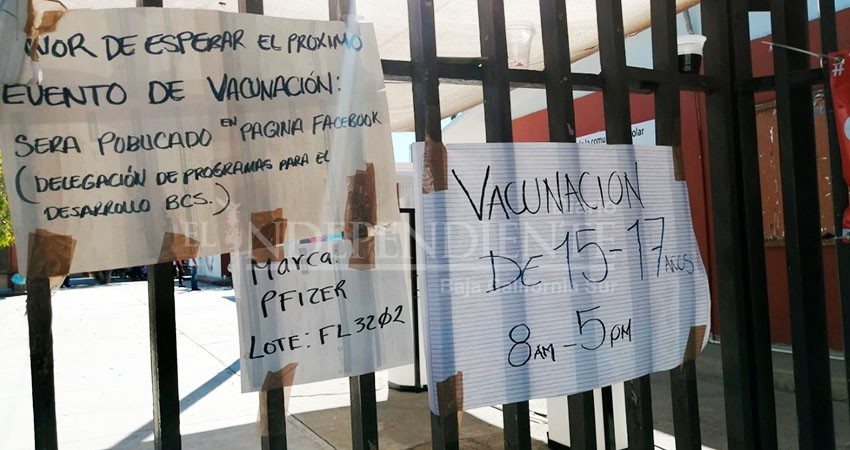 VOR DE ESPERAR EL PROXIMO
EVENTO DE VACUNACIÓN:
SERA POBLICADO EN PAGINA FACEBOOK
(DELEGACIÓN DE PROGRAMAS PARA EL
DESARROLLO BCS.)
Marca:
PFIZER
LOTE: FL3202
VACUNACION
DE 15-17 AÑOS
8AM - 5PM
EL INDEPENDIENTE
Baja California Sur
olar
#